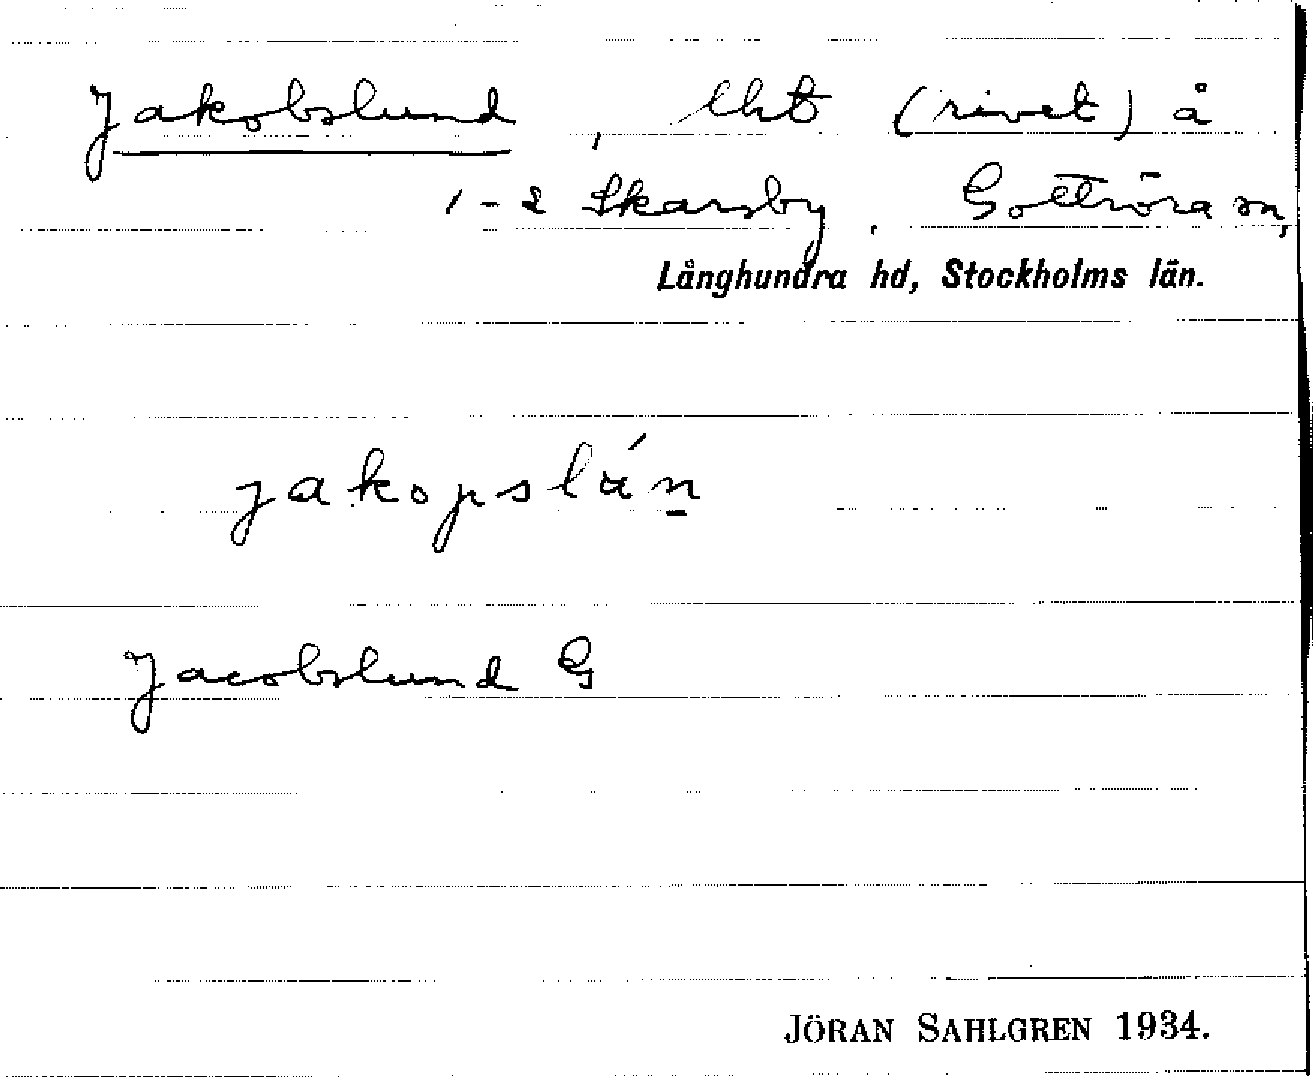 Jakobslund, lht (rivet) å
1-2 Skarsby. Gottröra sn,
Långhundra hd, Stockholms län.
jakopslán
Jacobslund G
JÖRAN SAHLGREN 1934.